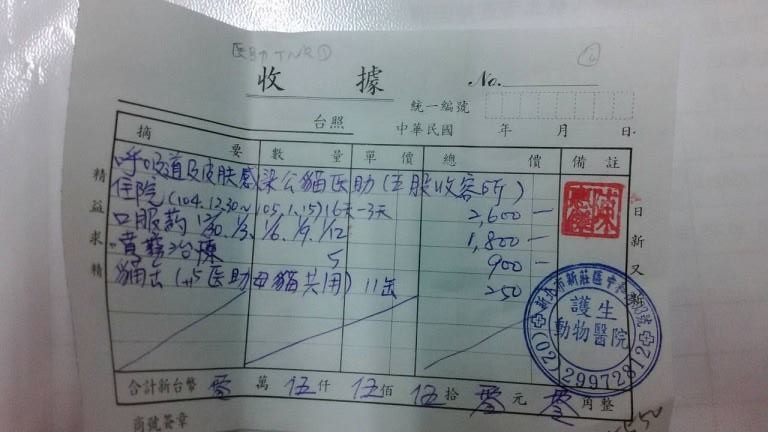 医助TNR①
收據
No.
統一編號
台照
中華民國 年 月 日
摘要 數量 單價 總價 備註
呼吸道及皮膚感染公貓医助(五股收容所)
住院(104.12.30~105.1.15)16天-3天 2,600-
口服葯 12/30, 1/3, 1/6, 1/9, 1/12 1,800-
噴霧治療 5 900-
貓去(医助母貓共用) 11 250
精益求精
日新又新
新北市新莊區中
護生
動物醫院
(02)29972812
合計新台幣 零萬伍仟伍佰伍拾零元零角整
商號簽章